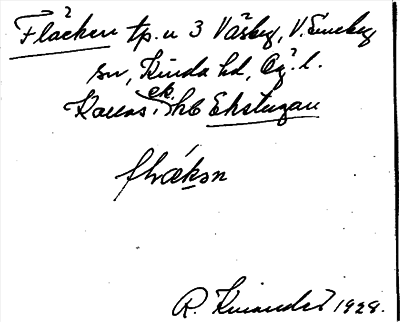 Fläcken tp. u 3 Väsby, V. Eneby
sn, Kinda hd, Ög. l.
Kallas ek. hb Ekstugan
flæ̀kən
R. Kinander 1928.